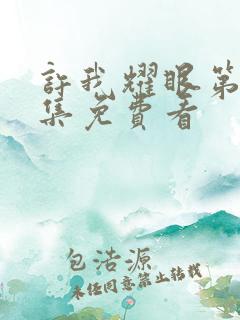 許我耀眼第
集免費看
包浩源
未经同意禁止转载